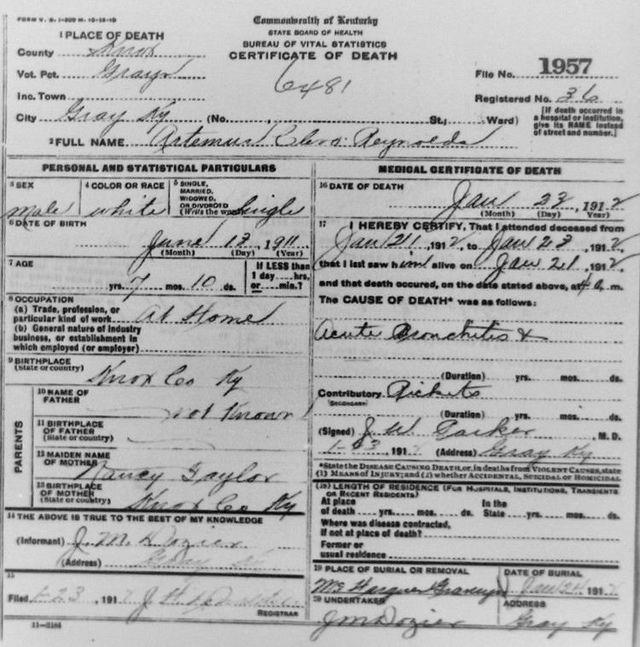 FORM V. S. 1-200 M. 10-18-10
Commonwealth of Kentucky
STATE BOARD OF HEALTH
BUREAU OF VITAL STATISTICS
CERTIFICATE OF DEATH
1 PLACE OF DEATH
County Knox
Vot. Pct. Grays
Inc. Town
City Gray Ky (No. St.; Ward)
6481
File No. 1957
Registered No. 36
[If death occurred in a hospital or institution, give its NAME instead of street and number.]
2 FULL NAME Artemus Reynolds
PERSONAL AND STATISTICAL PARTICULARS
3 SEX
Male
4 COLOR OR RACE
White
5 SINGLE, MARRIED, WIDOWED, OR DIVORCED (Write the word)
Single
6 DATE OF BIRTH
June 13, 1911
(Month) (Day) (Year)
7 AGE
yrs. 7 mos. 10 ds.
If LESS than 1 day....hrs. or....min.?
8 OCCUPATION
(a) Trade, profession, or particular kind of work At Home
(b) General nature of industry business, or establishment in which employed (or employer)
9 BIRTHPLACE (State or country)
Knox Co Ky
PARENTS
10 NAME OF FATHER
Not Known
11 BIRTHPLACE OF FATHER (State or country)
12 MAIDEN NAME OF MOTHER
Nancy Taylor
13 BIRTHPLACE OF MOTHER (State or country)
Knox Co Ky
14 THE ABOVE IS TRUE TO THE BEST OF MY KNOWLEDGE
(Informant) J. M. Dozier
(Address) Gray
15
Filed 1-23, 191 J. H.
REGISTRAR
11-3184
MEDICAL CERTIFICATE OF DEATH
16 DATE OF DEATH
Jan 23 1912
(Month) (Day) (Year)
17 I HEREBY CERTIFY, That I attended deceased from
Jan 21, 1912, to Jan 23, 1912,
that I last saw him alive on Jan 21, 1912,
and that death occured, on the date stated above, at 4 a m.
The CAUSE OF DEATH* was as follows:
Acute Bronchitis &
(Duration) yrs. mos. ds.
Contributory Rickets
(SECONDARY)
(Duration) yrs. mos. ds.
(Signed) J. W. Parker M. D.
1-23 191 (Address) Gray Ky
*State the DISEASE CAUSING DEATH, or, in deaths from VIOLENT CAUSES, state (1) MEANS OF INJURY; and (2) whether ACCIDENTAL, SUICIDAL or HOMICIDAL
18 LENGTH OF RESIDENCE (FOR HOSPITALS, INSTITUTIONS, TRANSIENTS OR RECENT RESIDENTS)
At place of death yrs. mos. ds. In the State yrs. mos. ds.
Where was disease contracted, if not at place of death?
Former or usual residence
19 PLACE OF BURIAL OR REMOVAL
DATE OF BURIAL
Jan 24 191
20 UNDERTAKER
J M Dozier
ADDRESS
Gray Ky